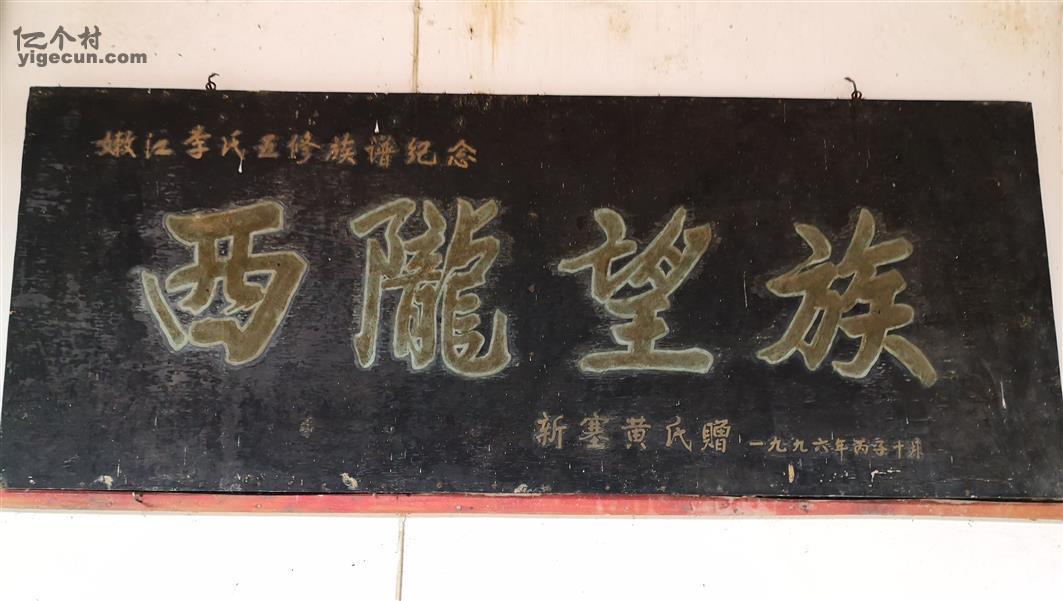 亿个村
yigecun.com
嫩江李氏五修族谱纪念
西隴望族
新塞黄氏赠
一九九六年丙子十月